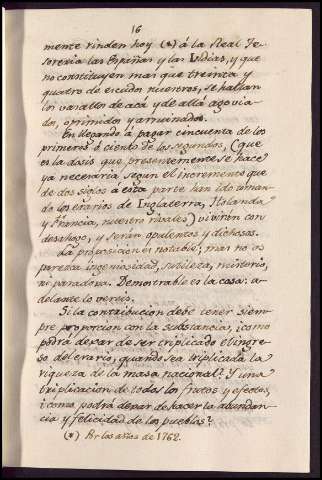 16
mente rinden hoy (*) á la Real Te-
soreria las Españas y las Indias, y que
no constituyen mas que treinta y
quatro de escudos nuestros, se hallan
los vasallos de acá y de allá agovia-
dos, oprimidos y arruinados.
En llegando á pagar cincuenta de los
primeros ó ciento de los segundos, (que
es la dosis que presentemente se hace
ya necesaria segun el incremento que
de dos siglos á esta parte han ido toman-
do los erarios de Inglaterra, Holanda
y Francia, nuestros rivales) vivirán con
desahogo, y serán opulentos y dichosos.
La proposicion es notable; mas no os
parezca ingeniosidad, sutileza, misterio,
ni paradoxa. Demostrable es la cosa: a-
delante lo vereis.
Si la contribucion debe tener siem-
pre proporcion con la substancia, ¿como
podrá dexar de ser triplicado el ingre-
so del erario, quando sea triplicada la
riqueza de la masa nacional? Y una
triplicacion de todos los frutos y efectos,
¿como podrá dexar de hacer la abundan-
cia y felicidad de los pueblos?
(*) Por los años de 1762.